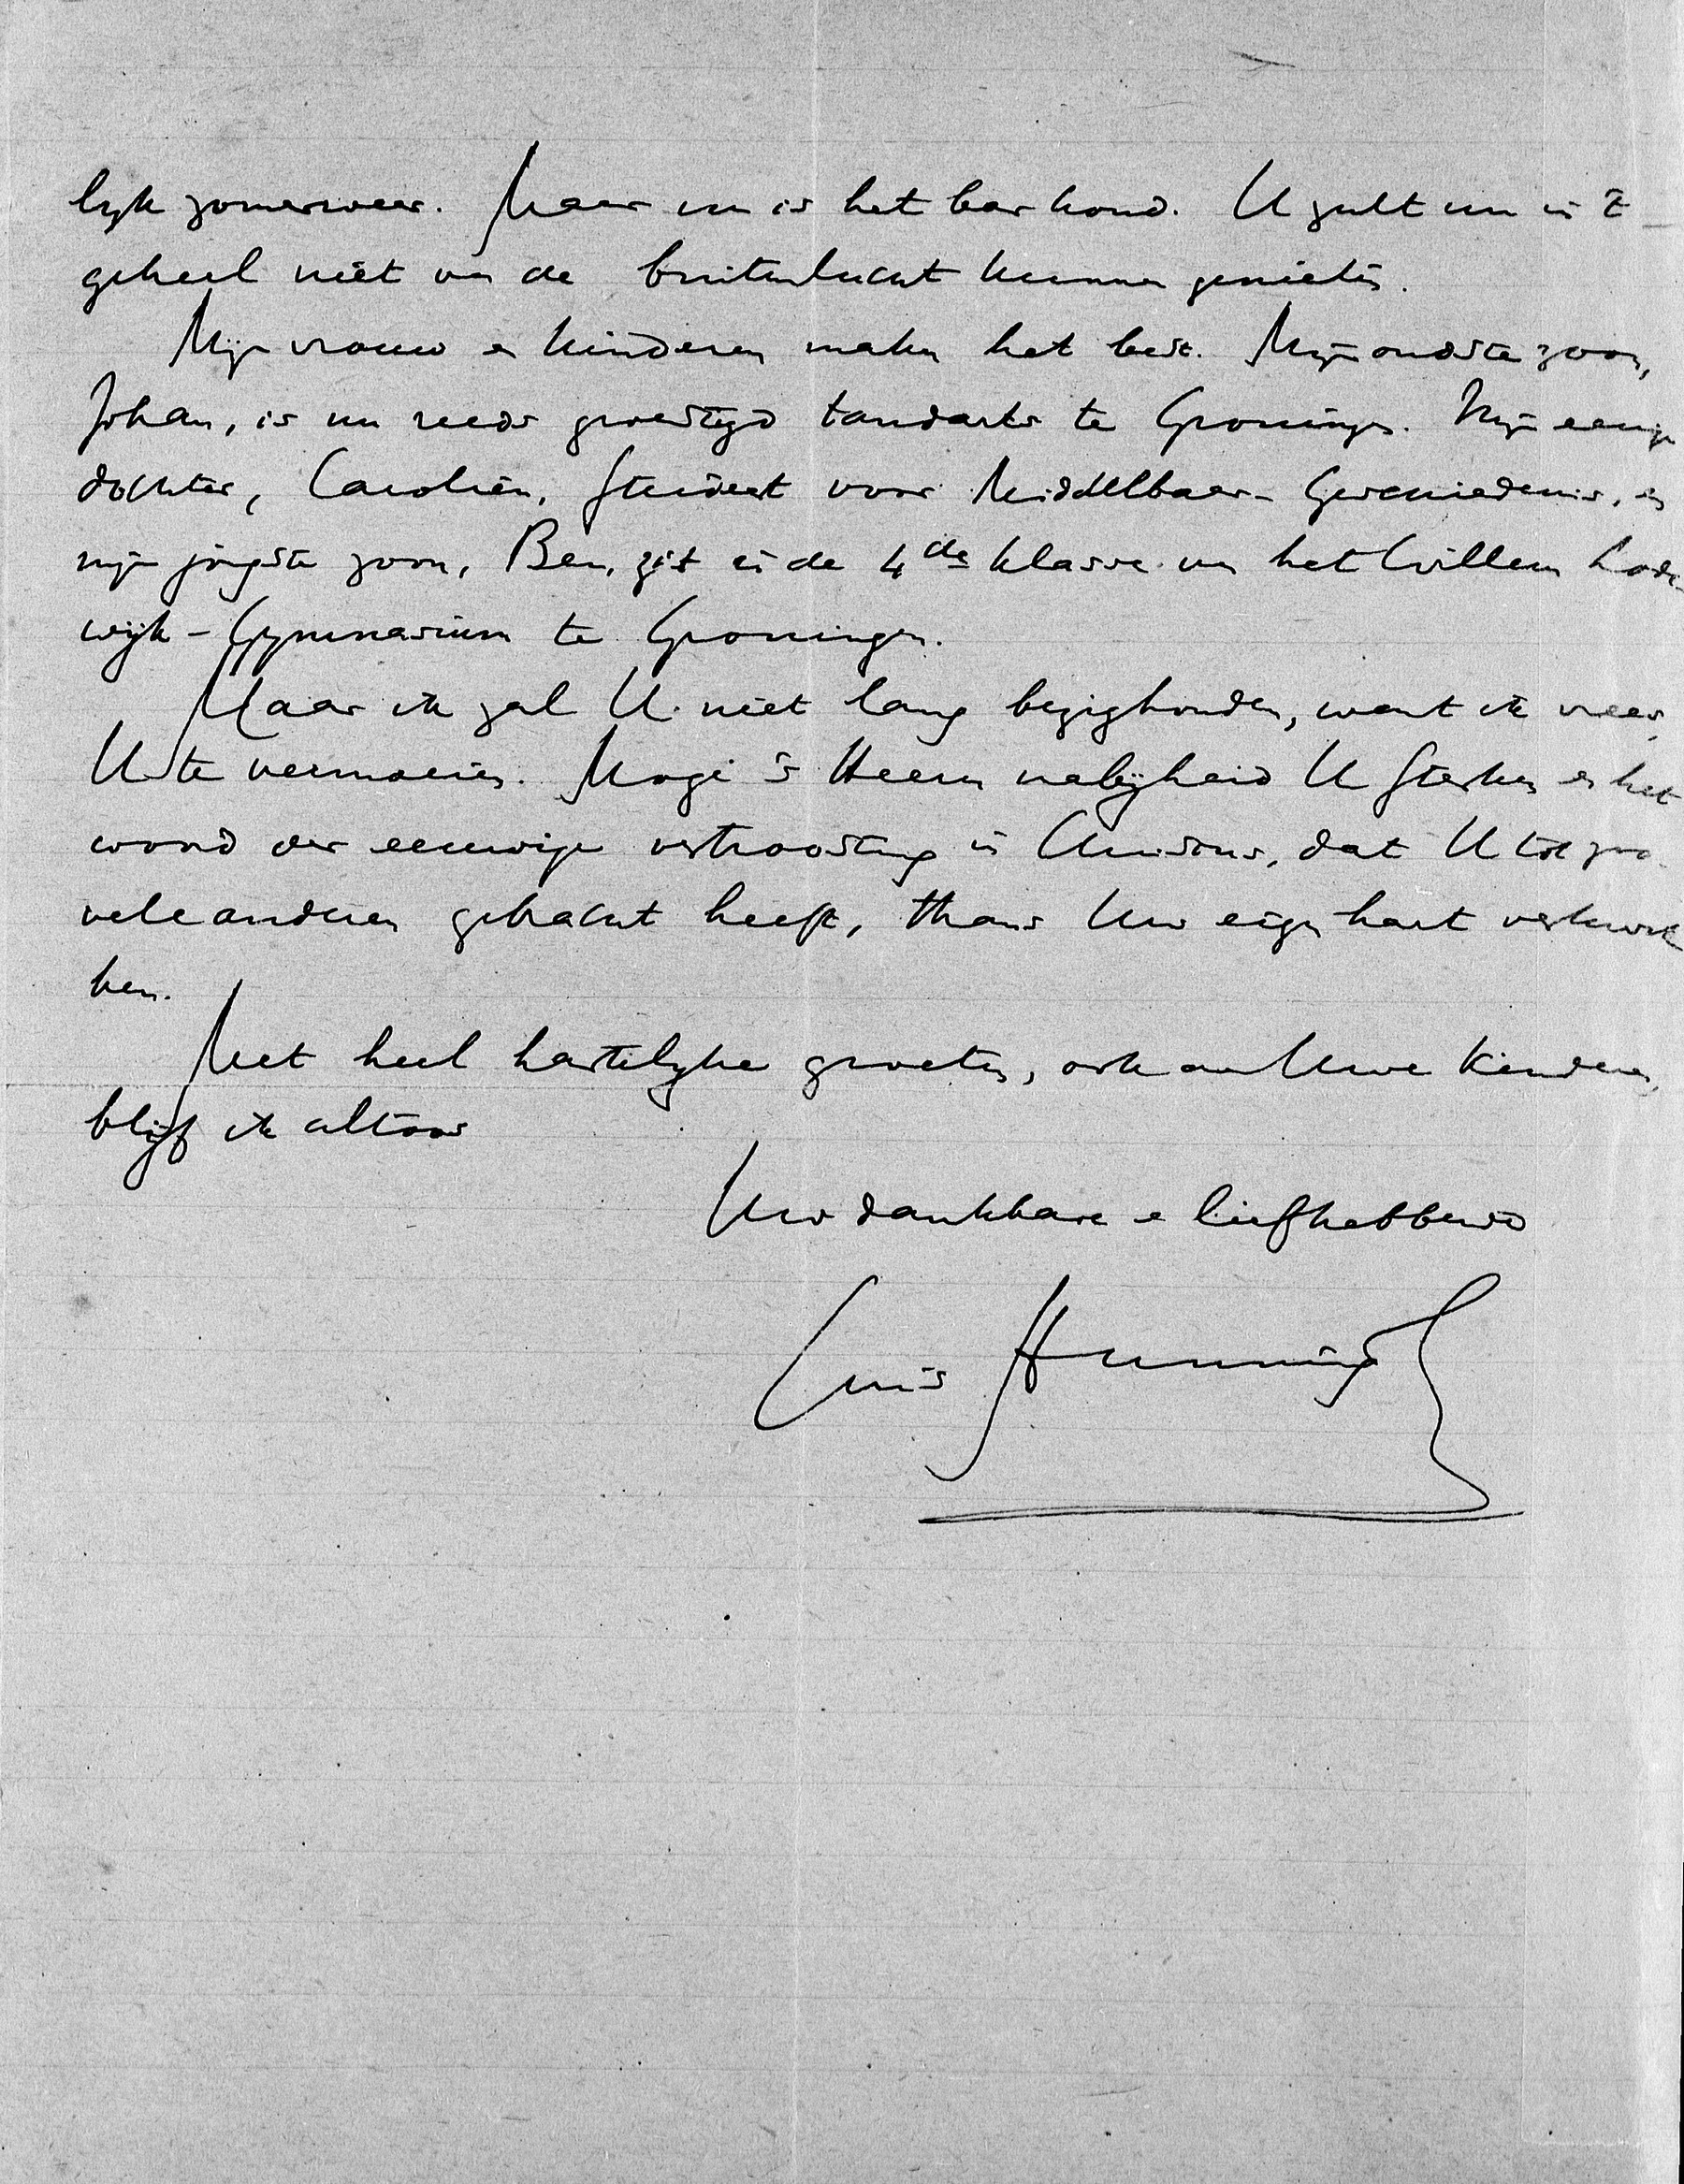 lijk zomerweer. Maar nu is het bar koud. U zult nu in 't
geheel niet van de buitenlucht kunnen genieten.
Mijn vrouw en kinderen maken het best. Mijn oudste zoon,
Johan, is nu reeds gevestigd tandarts te Groningen. Mijn eenige
dochter, Carolien, studeert voor Middelbaar-Geschiedenis, en
mijn jongste zoon, Ben, zit in de 4de klasse van het Willem Lode
wijk-Gymnasium te Groningen.
Maar ik zal U niet lang bezighouden, want ik vrees,
U te vermoeien. Moge 's Heeren nabijheid U sterken en het
woord der eeuwige vertroosting in Christus, dat U tot zoo
vele anderen gebracht heeft, thans Uw eigen hart verkwik
ken.
Met heel hartelijke groeten, ook aan Uwe kinderen,
blijf ik altoos
Uw dankbare en liefhebbende